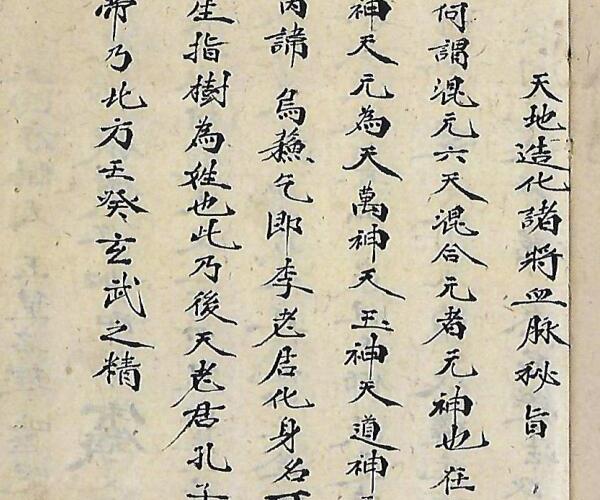 天地造化諸將血脉秘旨
何謂混元六天混合元者元神也在
神天元為天萬神天玉神天道神
諱烏𤍞炁即李老居化身名
生指樹為姓也此乃後天老君孔子
帝乃北方壬癸玄武之精